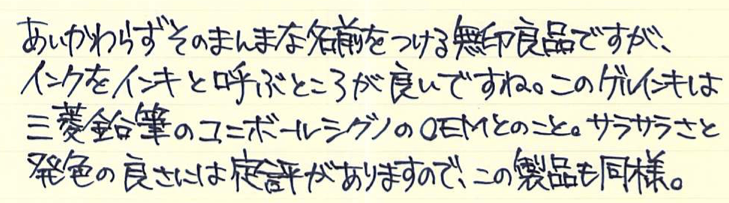 あいかわらずそのまんまな名前をつける無印良品ですが、
インクをインキと呼ぶところが良いですね。このゲルインキは
三菱鉛筆のユニボールシグノのOEMとのこと。サラサラさと
発色の良さには定評がありますので、この製品も同様。